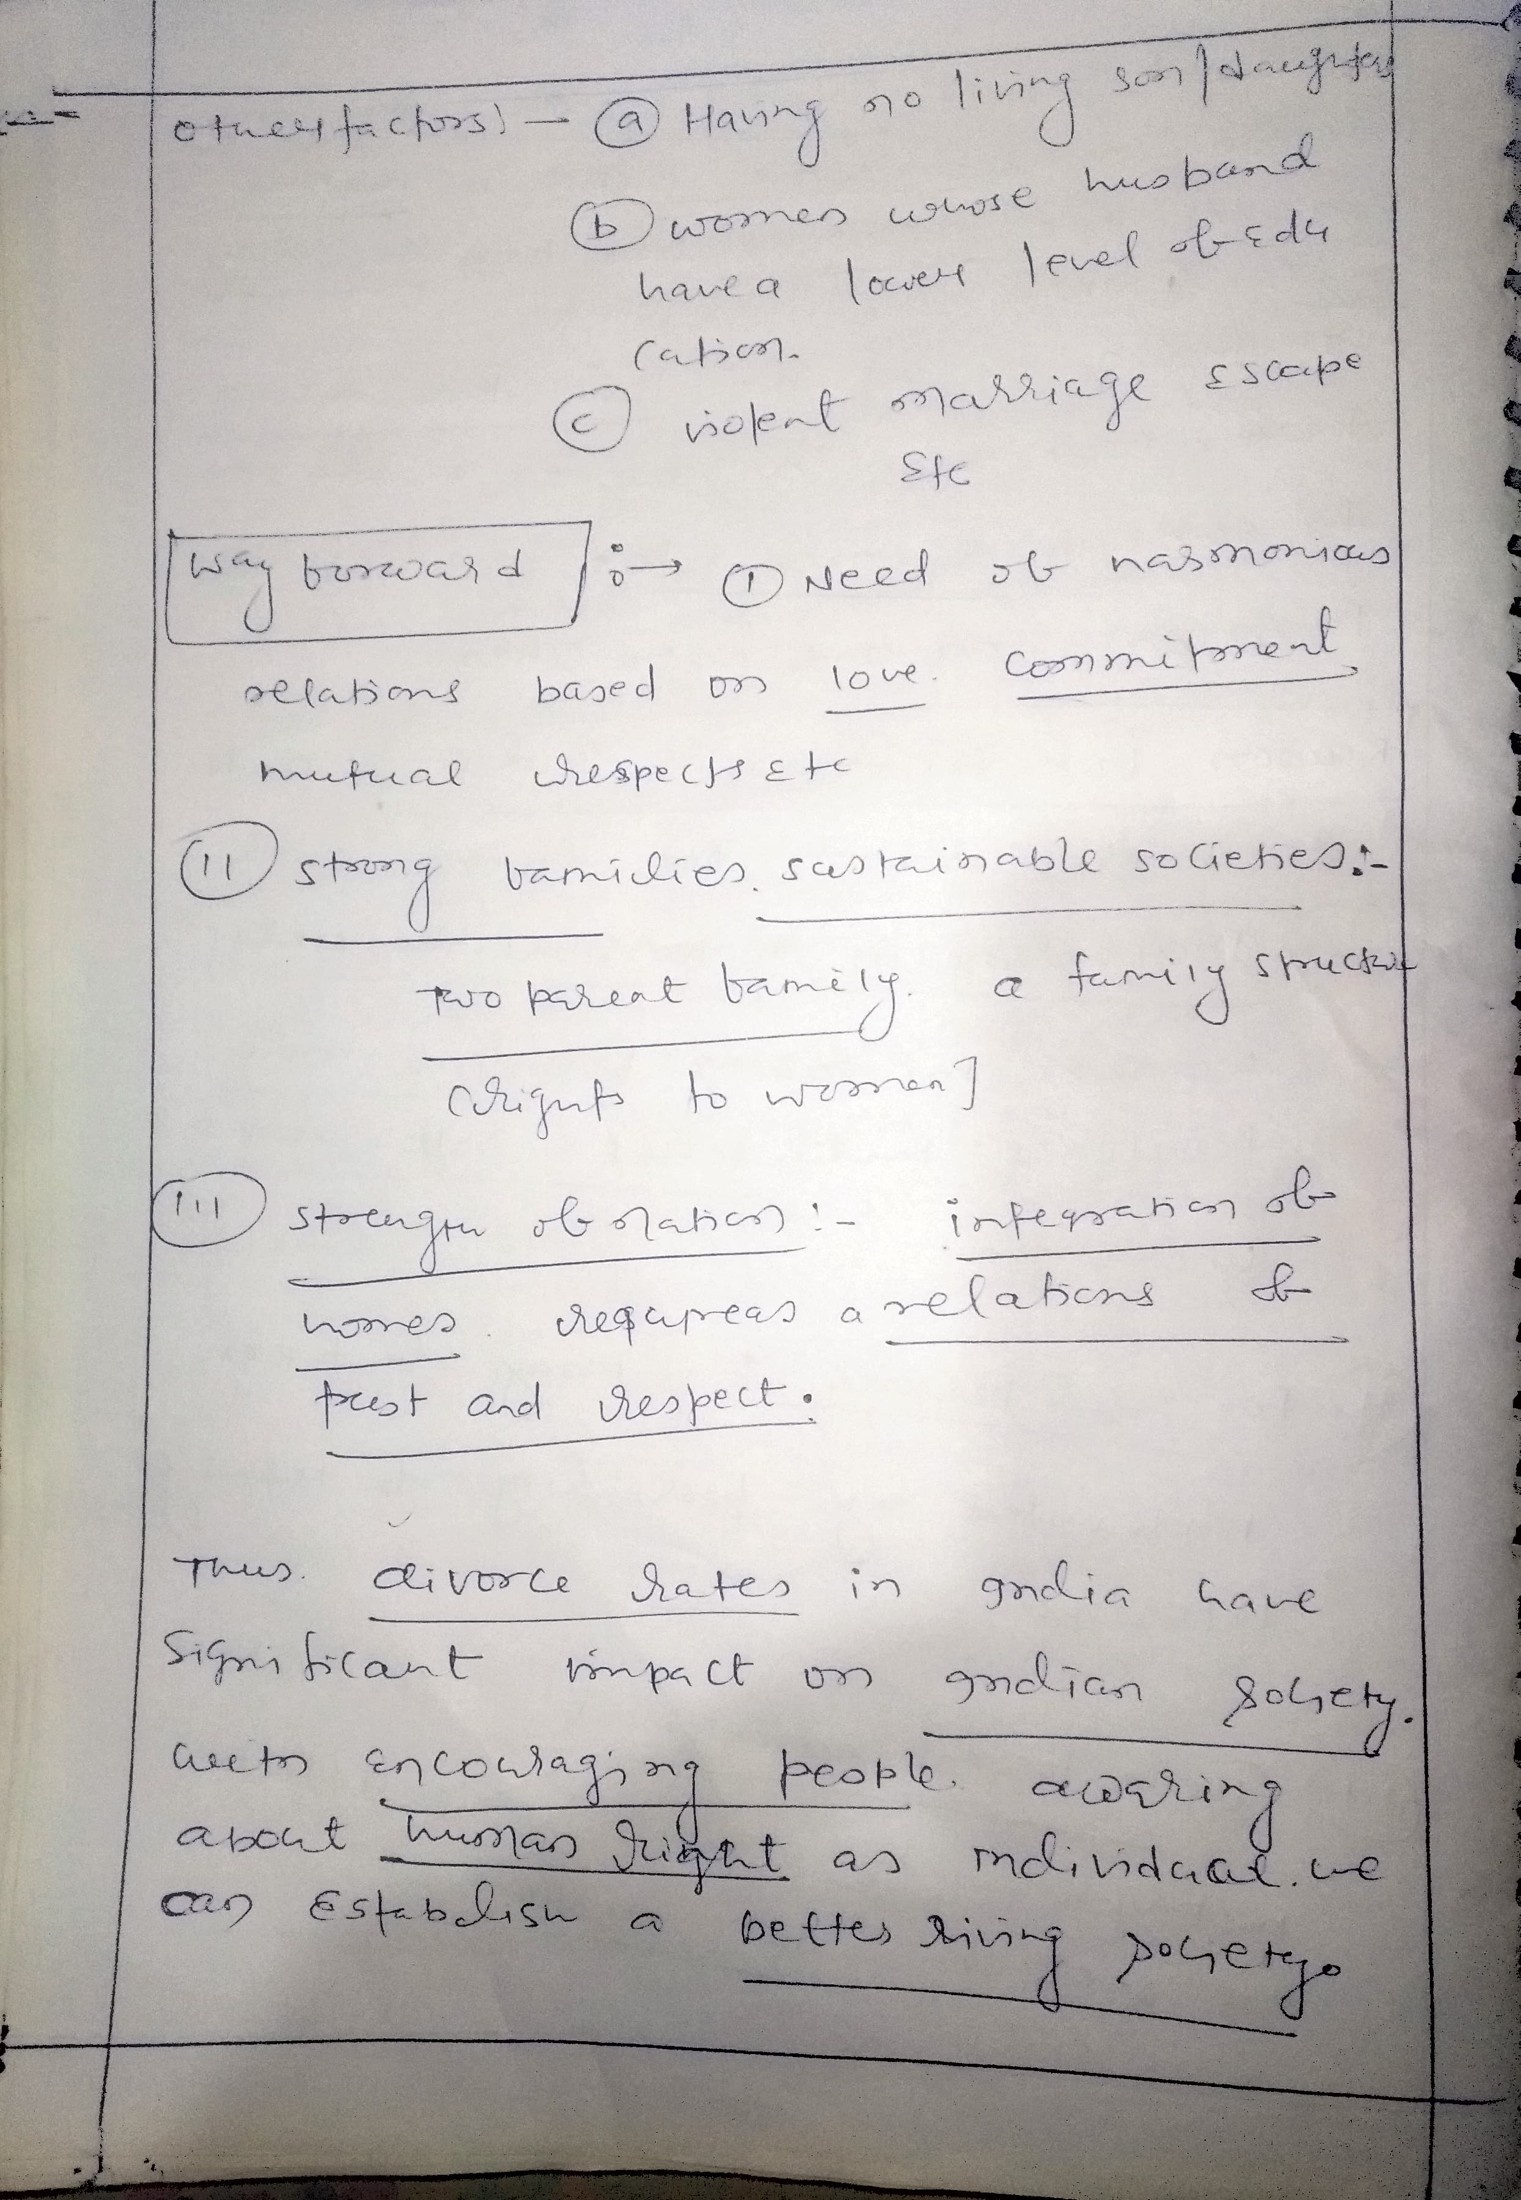 other factors) - (a) Having no living son/daughter
(b) women whose husband
have a lower level of edu
cation.
(c) violent marriage escape
etc
way forward :→ (I) Need of harmonious
relations based on love. commitment
mutual respects etc
(II) strong families. sustainable societies:-
Two parent family. a family structure
(rights to women]
(III) strength of nation:- integration of
homes. requireas a relations of
trust and respect.
Thus. divorce rates in India have
significant impact on Indian society.
with encouraging people. awaring
about human right as individual. we
can establish a better living society.